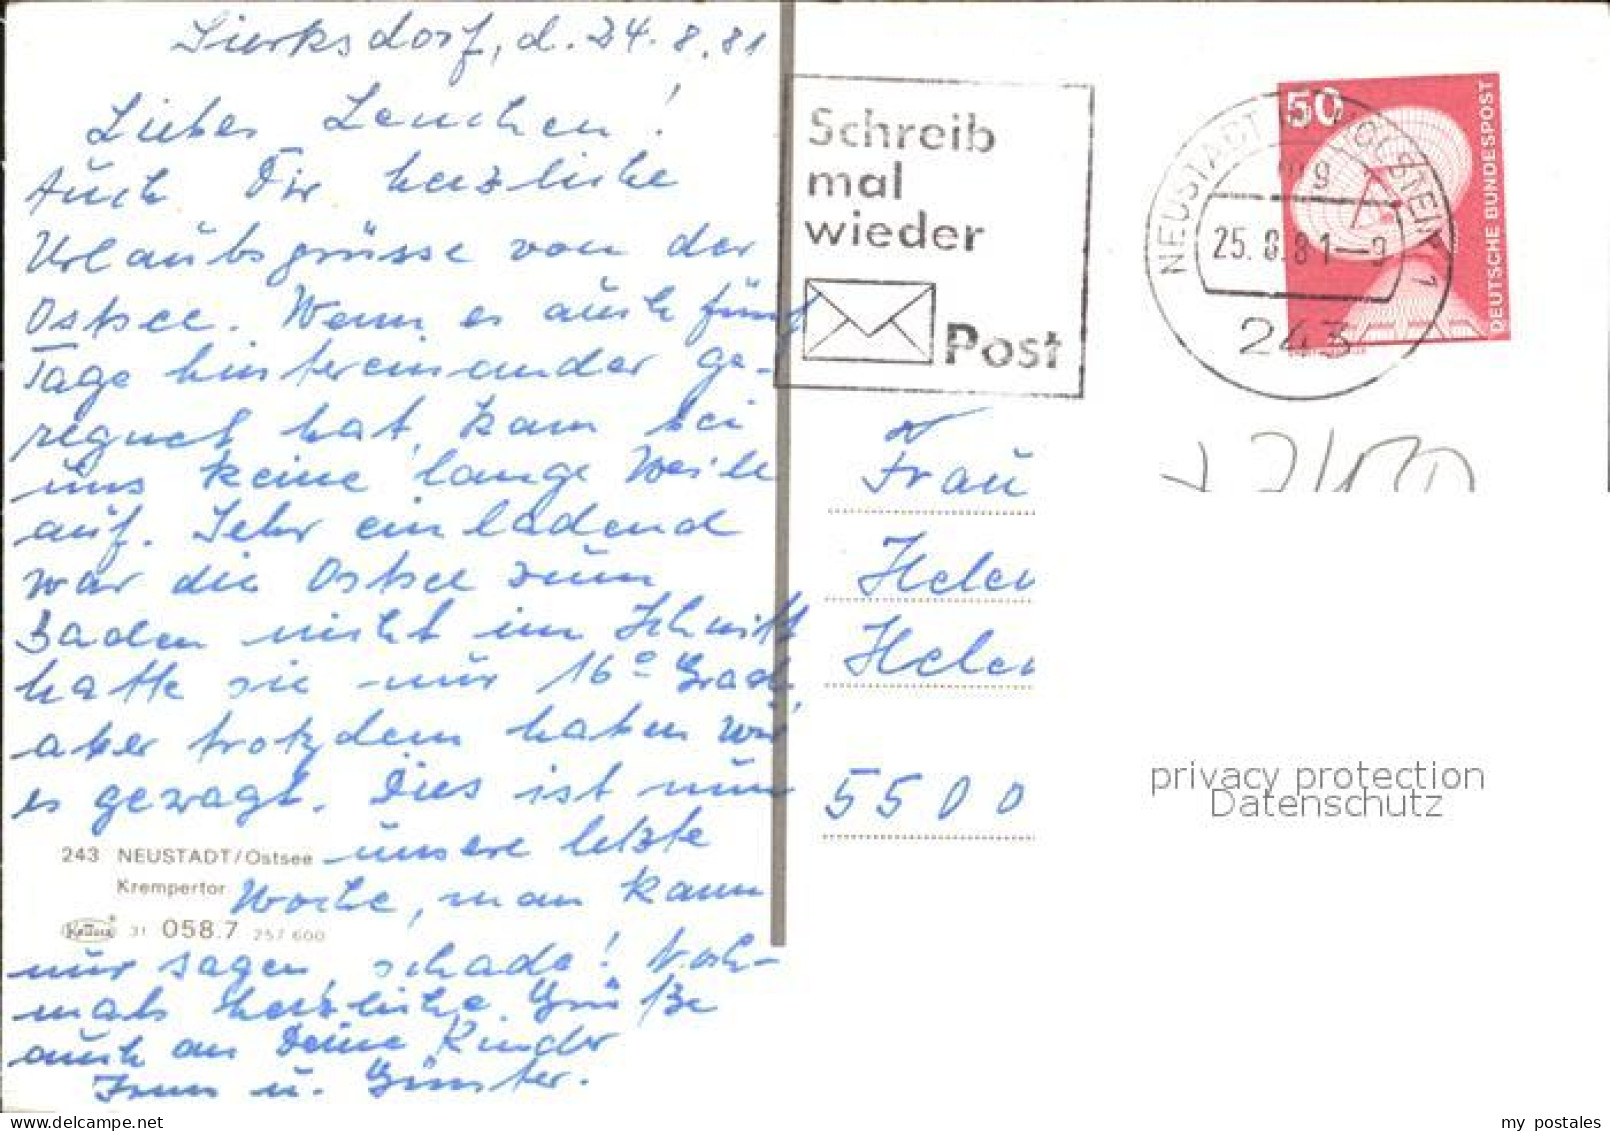 Sierksdorf, d. 24.8.81
Liebes Lenchen!
Auch Dir herzliche
Urlaubsgrüsse von der
Ostsee. Wenn es auch fünf
Tage hintereinander ge-
regnet hat, kam bei
uns keine lange Weile
auf. Sehr einladend
war die Ostsee zum
Baden nicht im Schnitt
hatte sie nur 16° Grad,
aber trotzdem haben wir
es gewagt. Dies ist nun
unsere letzte
Woche, man kann
nur sagen, schade! Noch-
mals herzliche Grüße
auch an Deine Kinder
u. Günter.
243 NEUSTADT/Ostsee
Krempertor
31 058.7 257 600
Schreib
mal
wieder
Post
NEUSTADT HOLSTEIN 1
25.8.81-9
243
50
DEUTSCHE BUNDESPOST
Frau
Helen
Helen
5500
privacy protection
Datenschutz
my postales